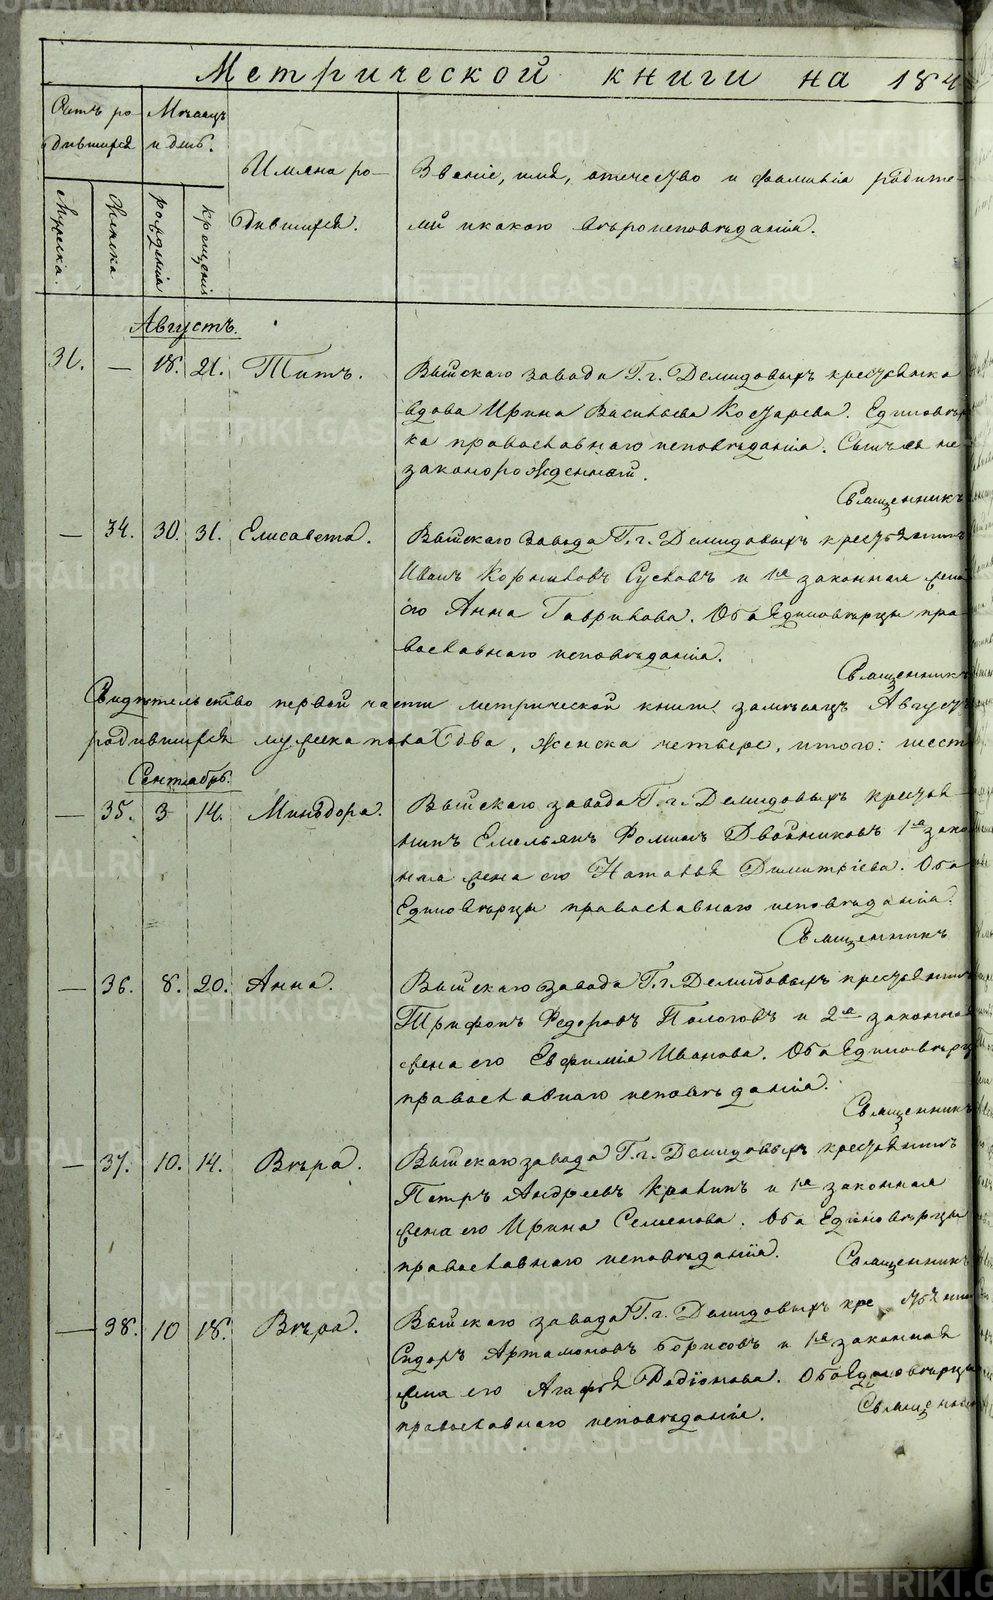 Метрической книги на 184
Счетъ ро- Мѣсяцъ
дившихся и день.
Имяна ро- Званіе, имя, отчество и фамилія родите-
дившихся. лей и какого вѣроисповѣданія.
Мужеска. Женска. рожденія крещенія
Августъ.
31. — 18. 21. Титъ. Выйскаго завода Г.г. Демидовыхъ крестьянка
вдова Ирина Васильева Косарева. Единовѣр
ка православнаго исповѣданія. Сынъ ея не
законорожденный.
Священникъ
— 34. 30. 31. Елисавета. Выйскаго завода Г.г. Демидовыхъ крестьянинъ
Иванъ Корниловъ Сусловъ и 1я законная жена
его Анна Гаврилова. Оба Единовѣрцы пра-
вославнаго исповѣданія.
Священникъ
Свидѣтельство первой части метрической книги за мѣсяцъ Августъ
родившихся мужеска пола два, женска четыре, итого: шесть
Сентябрь.
— 35. 3 14. Минодора. Выйскаго завода Г.г. Демидовыхъ крестья-
нинъ Емельянъ Фоминъ Двойниковъ 1я закон
ная жена его Наталья Димитріева. Оба
Единовѣрцы православнаго исповѣданія.
Священникъ
— 36. 8. 20. Анна. Выйскаго завода Г.г. Демидовыхъ крестьянинъ
Трифонъ Федоровъ Пологовъ и 2я законная
жена его Евфимія Иванова. Оба Единовѣрцы
православнаго исповѣданія.
Священникъ
— 37. 10. 14. Вѣра. Выйскаго завода Г.г. Демидовыхъ крестьянинъ
Петръ Андреевъ Кралинъ и 1я законная
жена его Ирина Семенова. Оба Единовѣрцы
православнаго исповѣданія.
Священникъ
— 38. 10 18. Вѣра. Выйскаго завода Г.г. Демидовыхъ крестьянинъ
Сидоръ Артамоновъ Борисовъ и 1я законная
жена его Агафья Родіонова. Оба Единовѣрцы
православнаго исповѣданія.
Священникъ